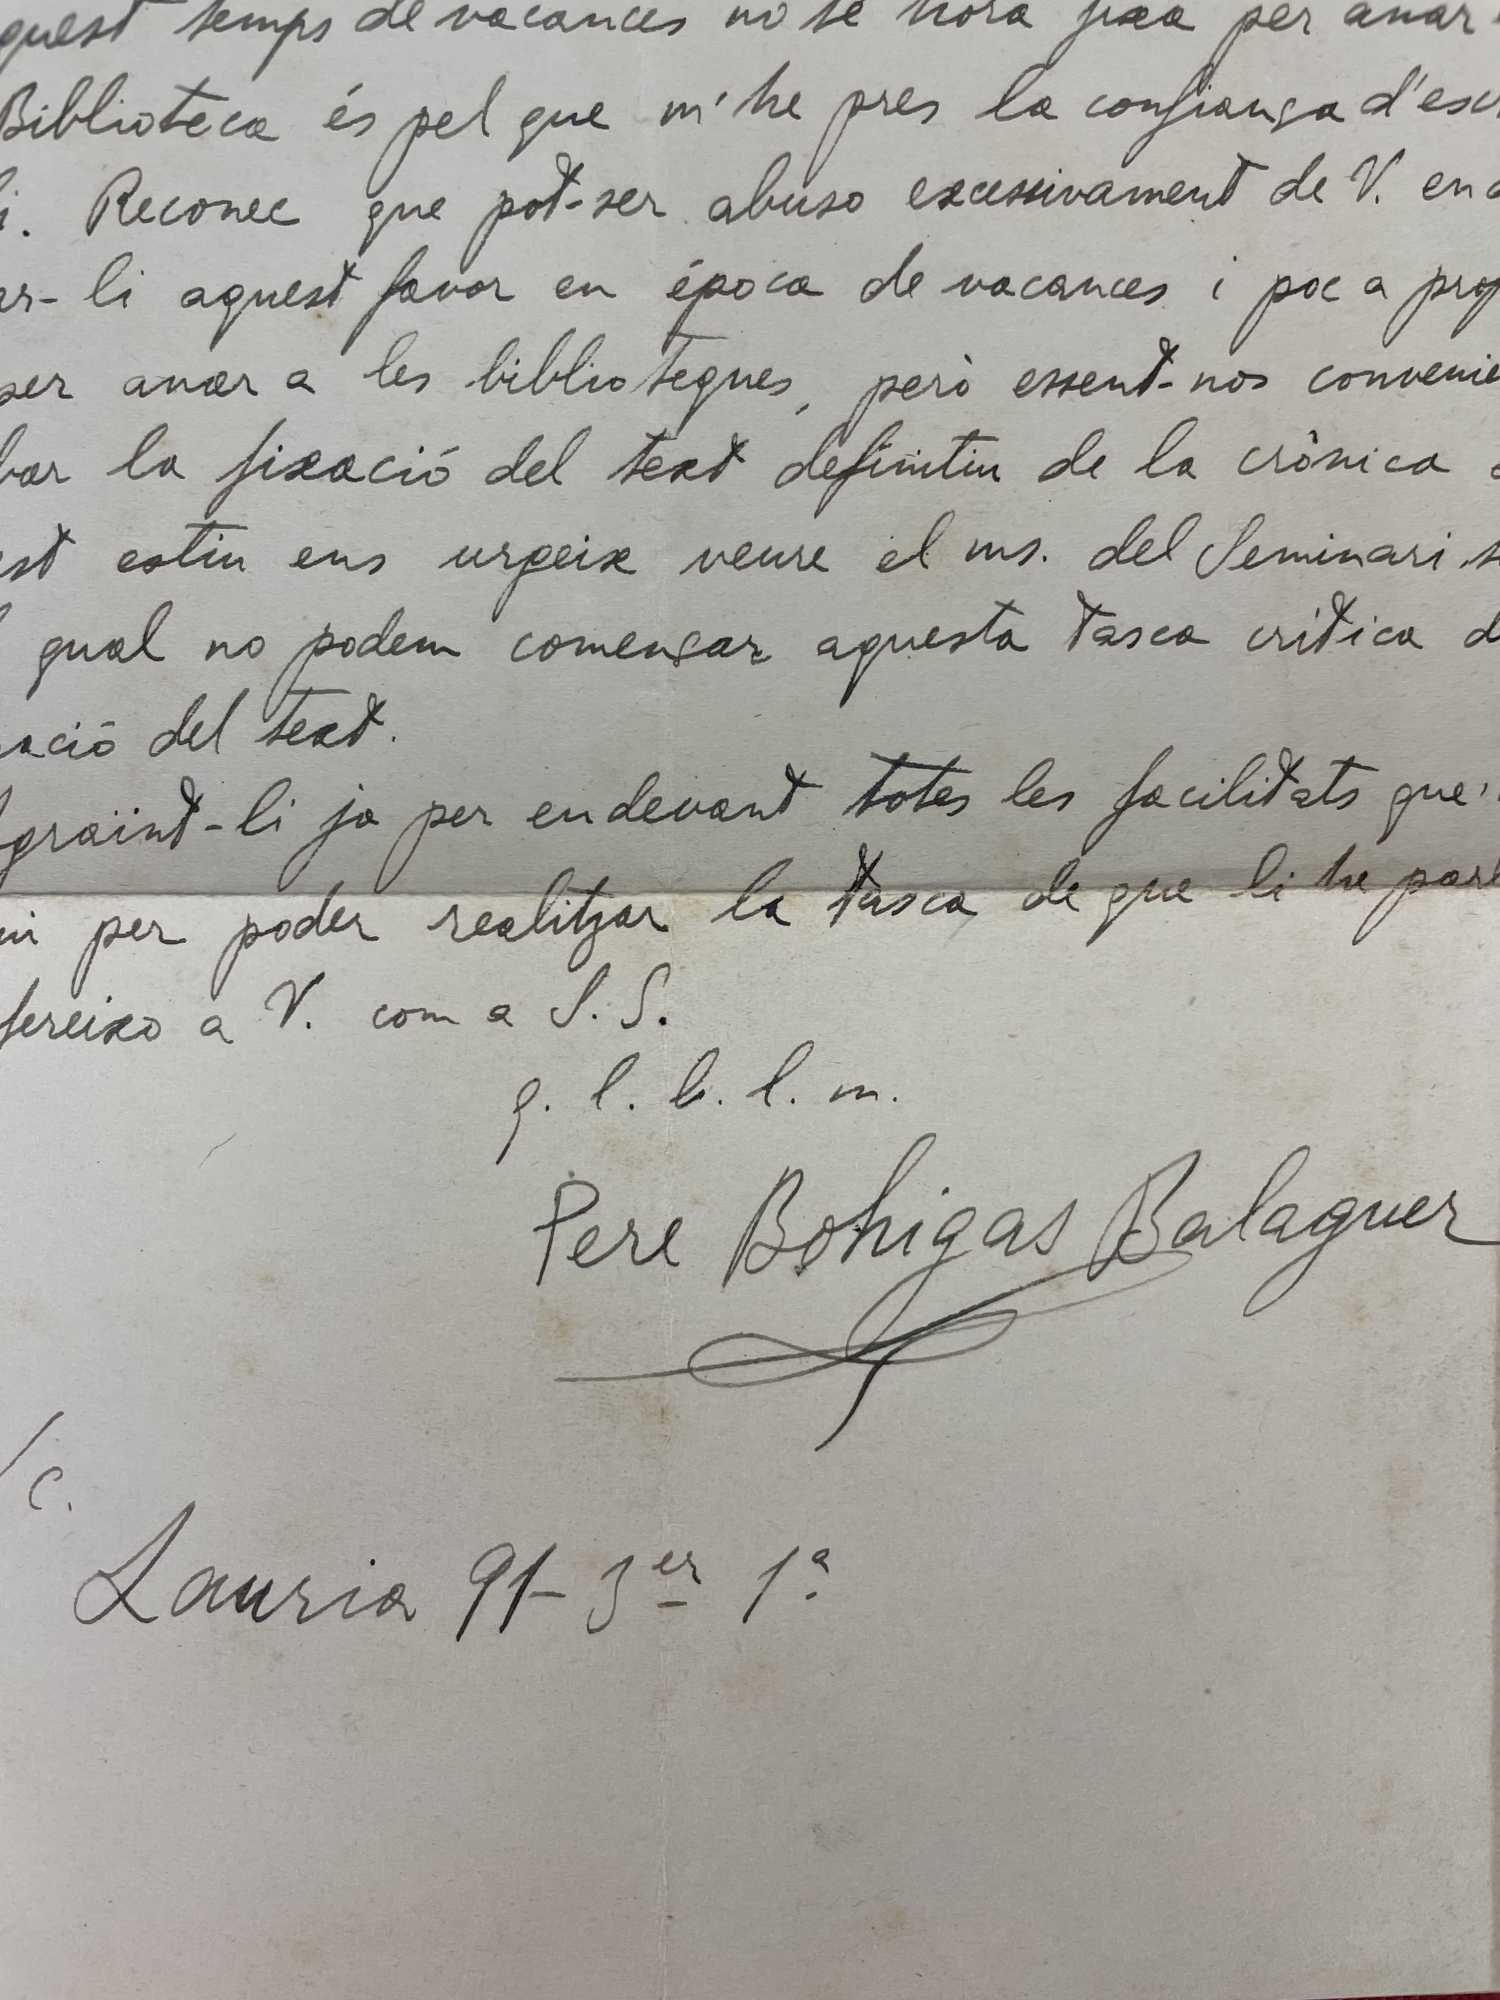 quest temps de vacances no té hora fixa per anar
Biblioteca és pel que m'he pres la confiança d'esc
li. Reconec que pot-ser abuso excessivament de V. en
ar-li aquest favor en época de vacances i poc a prop
per anar a les biblioteques, però essent-nos convenie
bar la fixació del text definitiu de la crònica
est estiu ens urgeix veure el ms. del Seminari s
l qual no podem començar aquesta tasca crítica d
xació del text.
Agraïnt-li ja per endevant totes les facilitats que'
ni per poder realitzar la tasca de que li he parl
fereixo a V. com a S. S.
q. l. b. l. m.
Pere Bohigas Balaguer
/c.
Lauria 91- 3er 1ª